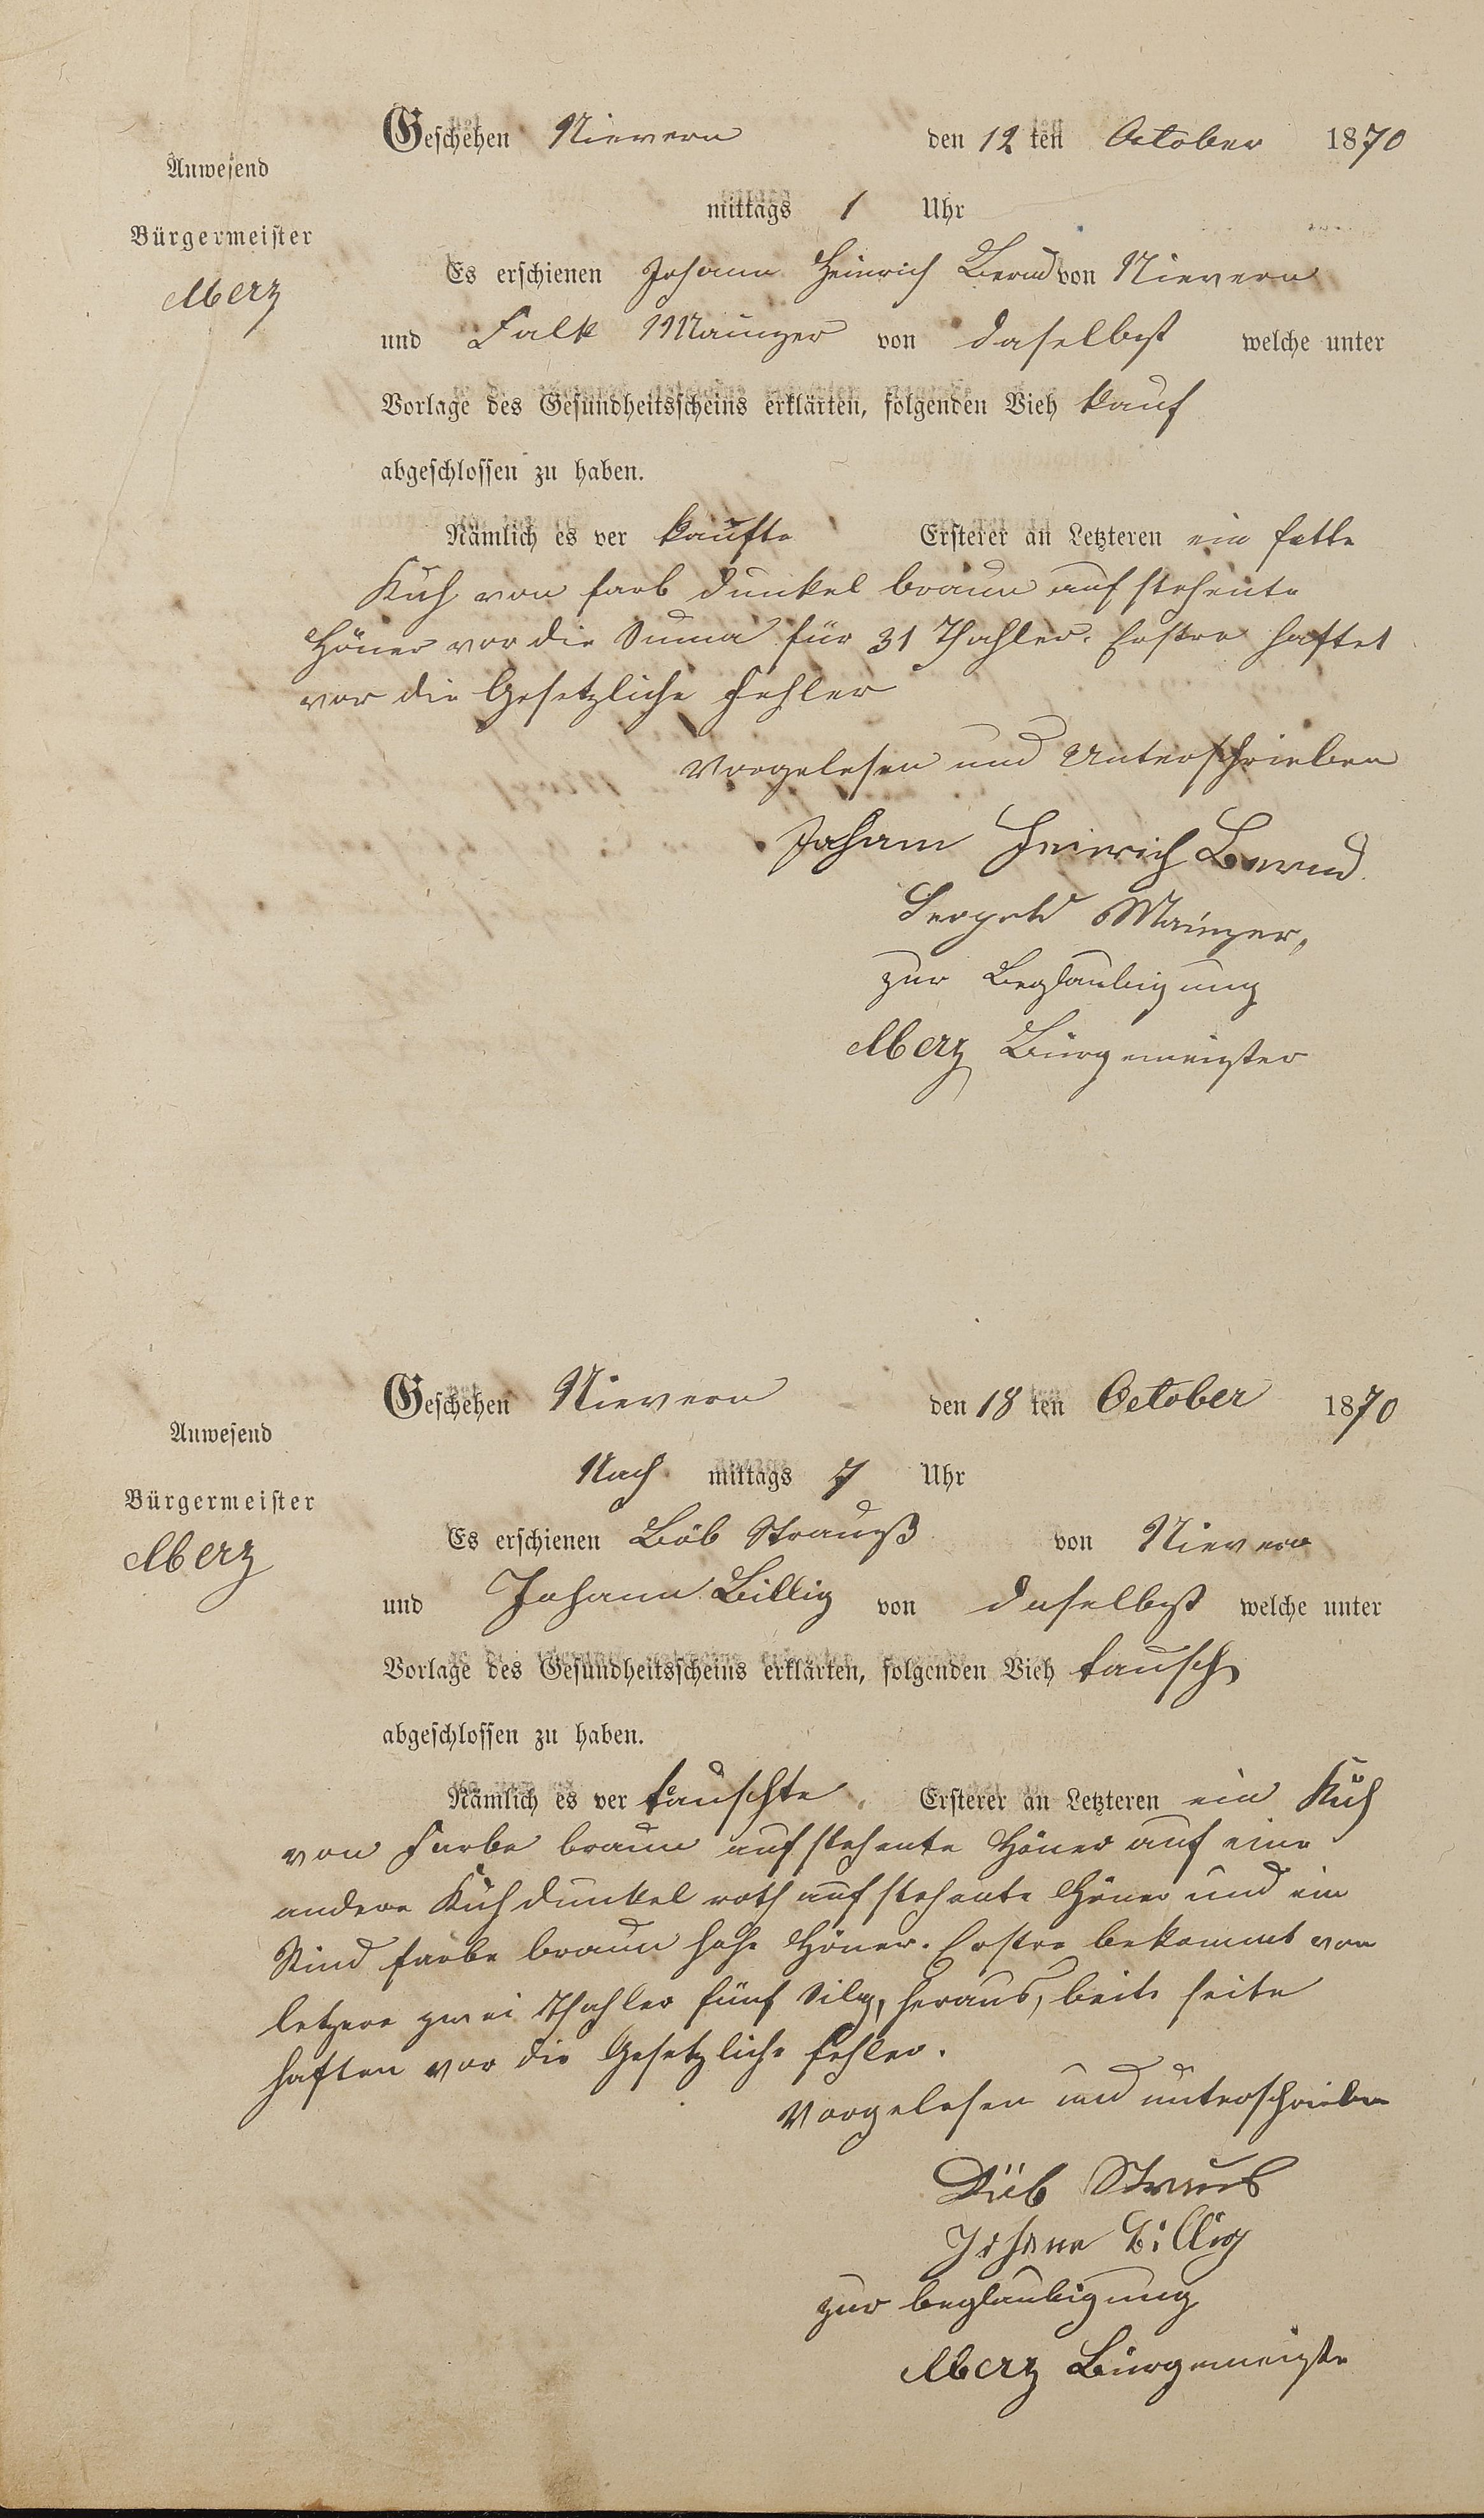 Geschehen Nievern den 12 ten October 1870
Anwesend
mittags 1 Uhr
Bürgermeister
Es erschienen Johann Heinrich Bernd von Nievern
Merz
und Falk Mainzer von daselbst welche unter
Vorlage des Gesundheitsscheins erklärten, folgenden Vieh kauf
abgeschlossen zu haben.
Nämlich es ver kaufte Ersterer an Letzteren ein fette
Kuh von farb dunkel braun auf stehente
Höner vor die Suma für 31 Thahler. Erstre haftet
vor die Gesetzliche Fehler
Vorgelesen und Unterschrieben
Johann Heinrich Bernd.
Leopold Mainzer,
zur Beglaubigung
Merz Bürgemeigster
Geschehen Nievern den 18 ten October 1870
Anwesend
Nach mittags 7 Uhr
Bürgermeister
Es erschienen Löb Straugß von Nievern
Merz
und Johann Billig von daselbst welche unter
Vorlage des Gesundheitsscheins erklärten, folgenden Vieh tausch
abgeschlossen zu haben.
Nämlich es ver tauschte Ersterer an Letzteren ein Kuh
von Farbe braun auf stehente Höner auf eine
andere Kuh dunkel roth auf stehente Höner und ein
Rind farbe braun hohe Höner. Erstre bekommt von
letzere zwei Thahler fünf Silg, heraus, beite seite
haften vor die Gesetzliche fehler.
Vorgelesen und unterschrieben
Straus
Johann Billig
zur beglaubigung
Merz Bürgemeigste